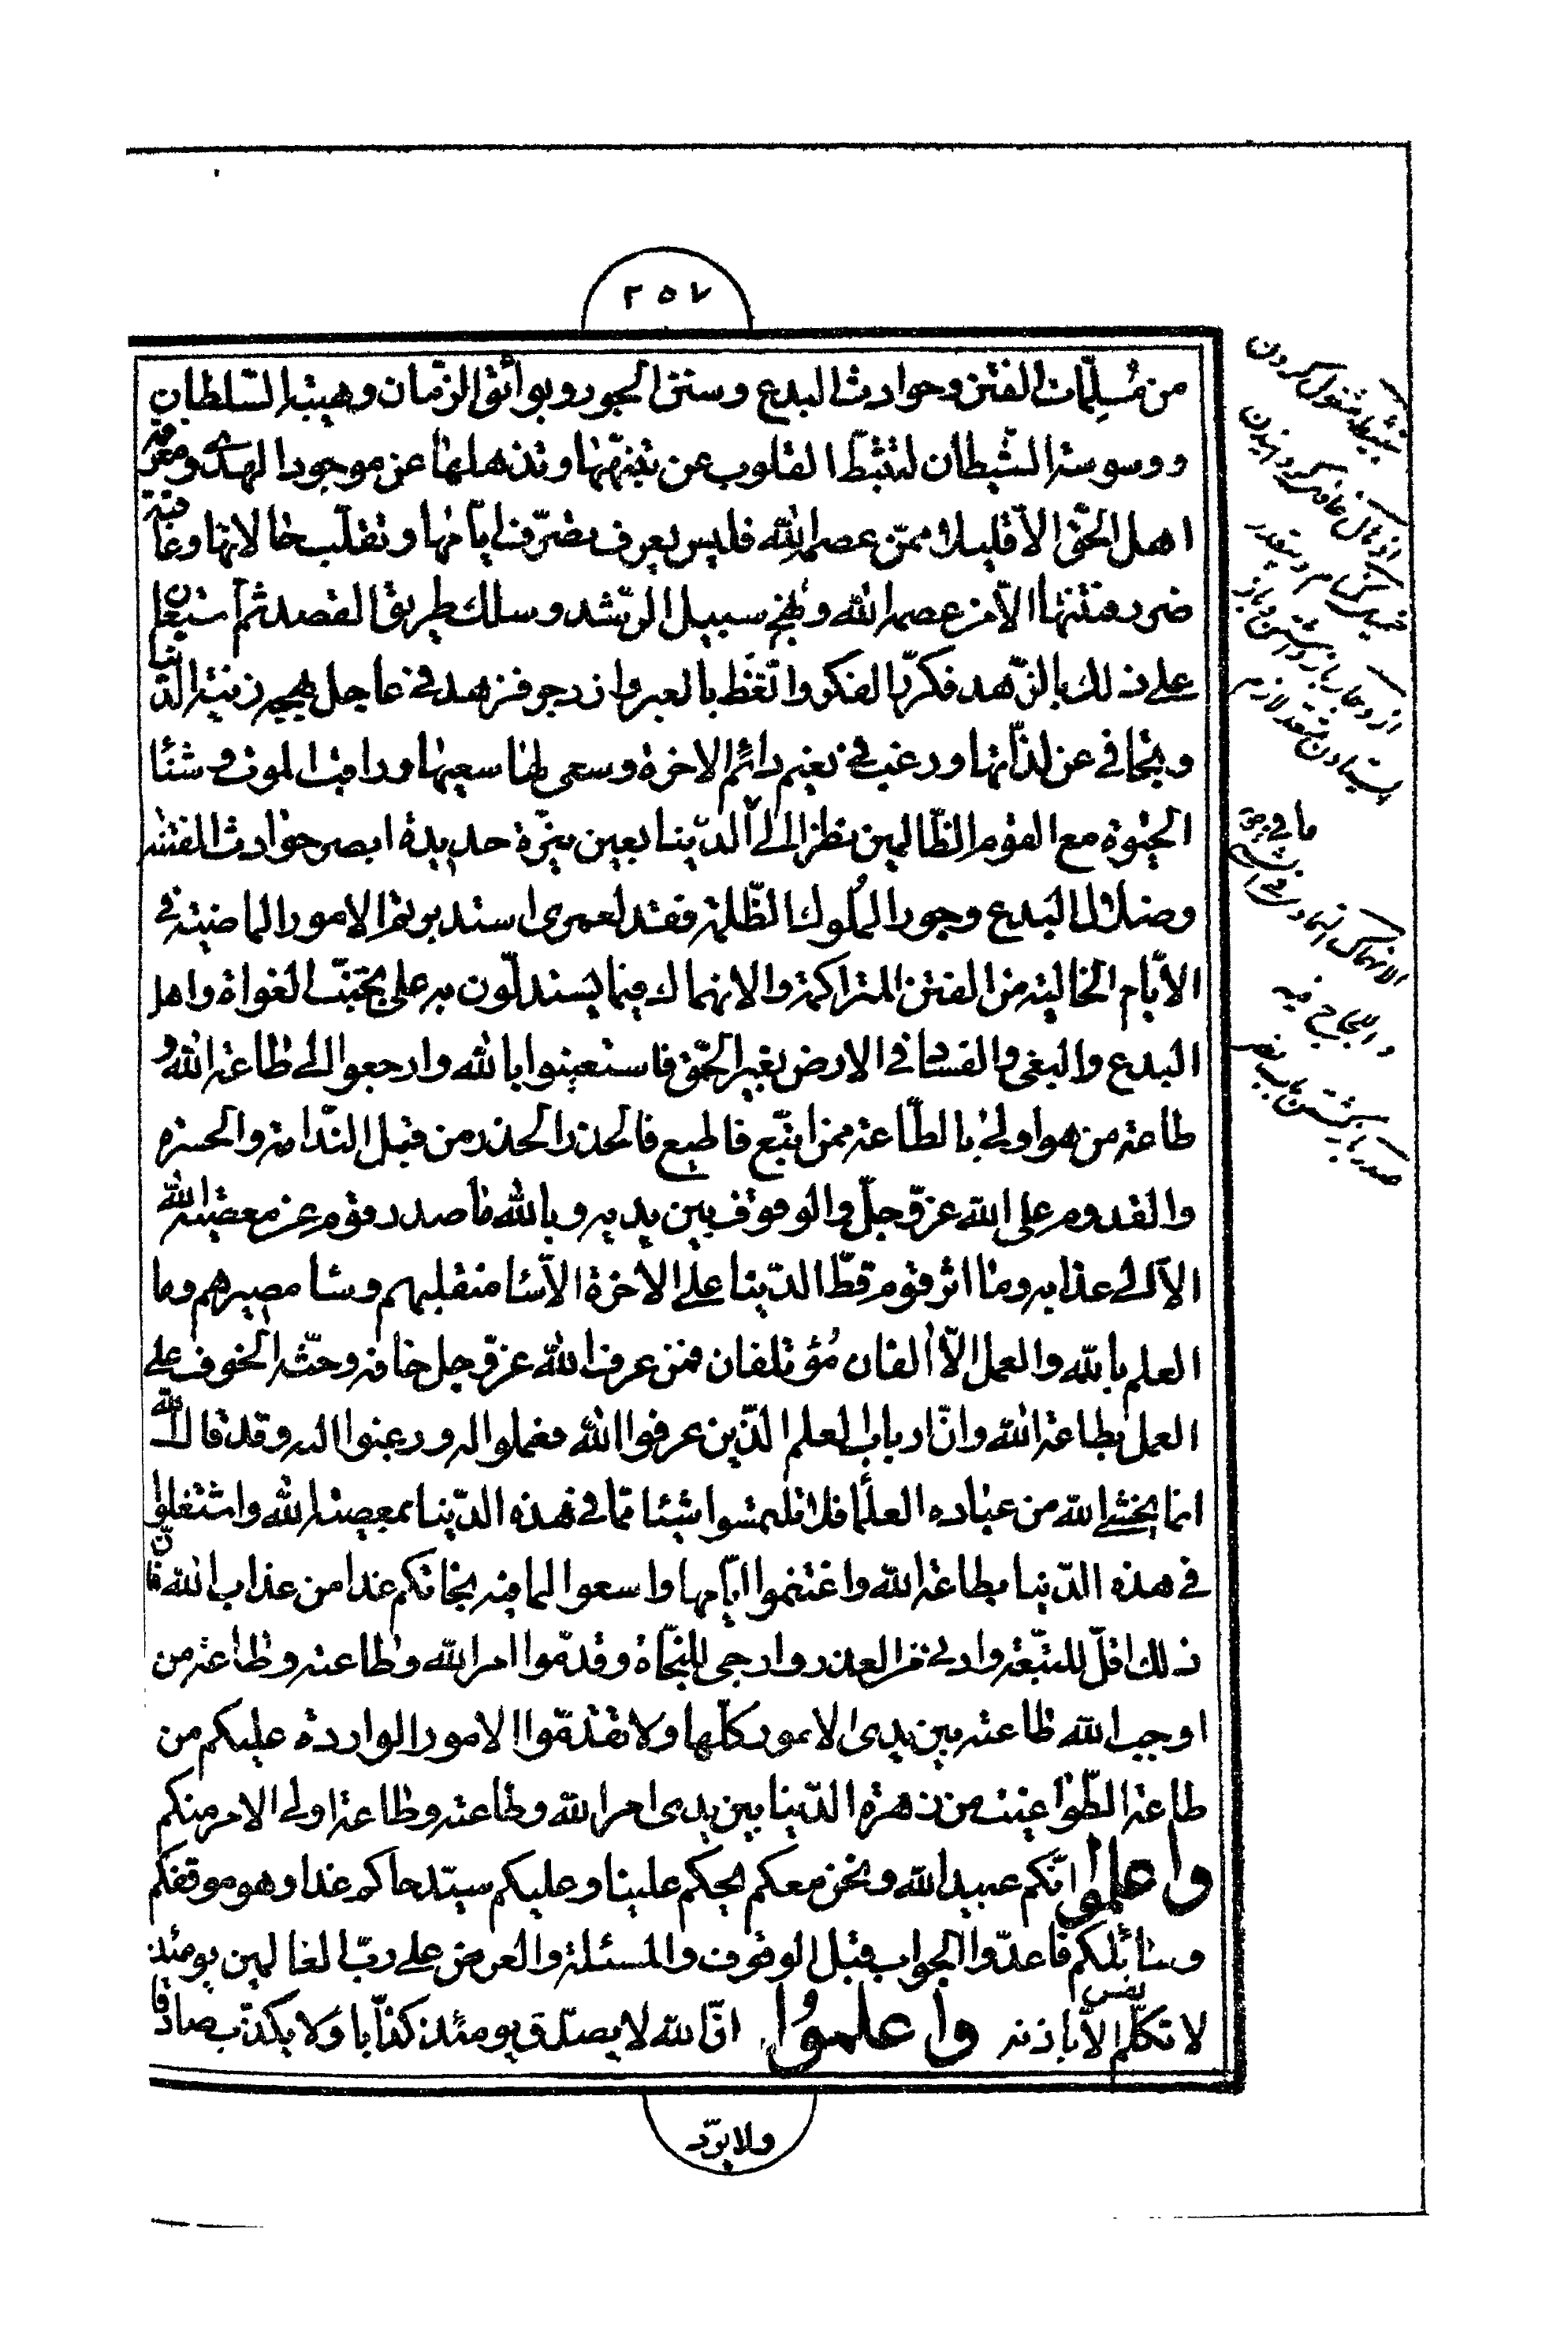 ٢٥٧
من مُسِلِمّات الفتن وحوادث البدع وسنن الجور وبوائق الزّمان وهيبة السّلطان
ووسوسة الشّيطان لتثبّط القلوب عن تنبّهها وتذهلها عن موجود الهدى ومعرفة
اهل الحقّ الّا قليلا ممّن عصم الله فليس يعرف تصرّف ايّامها وتقلّب حالاتها وعاقبة
ضرر فتنتها الّا من عصم الله ونهج سبيل الرّشد وسلك طريق القصد ثمّ استعان
على ذلك بالزّهد فكرّر الفكر واتّعظ بالعبر وازدجر فزهد في عاجل بهجة زينة الدّنيا
وتجافى عن لذّاتها ورغب في نعيم دائم الاخرة وسعى لها سعيها وراقب الموت وشنأ
الحيوة مع القوم الظّالمين نظر الى الدّنيا بعين نيّرة حديدة ابصر حوادث الفتنة
وضلال البدع وجور الملوك الظّلمة فقد لعمرى استدبرتم الامور الماضية في
الايّام الخالية من الفتن المتراكمة والانهماك فيما يستدلّون به على تجنّب الغواة واهل
البدع والبغى والفساد في الارض بغير الحقّ فاستعينوا بالله وارجعوا الى طاعة الله و
طاعة من هو اولى بالطّاعة ممن اتّبع فاطيع فالحذر الحذر من قبل النّدامة والحسرة
والقدوم على الله عزّ وجلّ والوقوف بين يديه وبالله ما صدر قوم عن معصية الله
الّا الى عذابه وما اثر قوم قطّ الدّنيا على الاخرة الّا سا منقلبهم وسا مصيرهم وما
العلم بالله والعمل الّا الفان مُؤتلفان فمن عرف الله عزّ وجل خافه وحثّه الخوف على
العمل بطاعة الله وانّ ارباب العلم الّذين عرفوا الله فعملوا له ورغبوا اليه وقد قال الله
انما يخشى الله من عباده العلما فلا تلتمسوا شيئا ممّا في هذه الدّنيا بمعصية الله واشتغلوا
في هذه الدّنيا بطاعة الله واغتنموا ايّامها واسعوا لما فيه نجاتكم غدا من عذاب الله فانّ
ذلك اقلّ للتّبعة وادنى من العذر وارجى للنّجاة وقدّموا امر الله وطاعته وطاعة من
اوجب الله طاعته بين يدى الامور كلّها ولا تقدّموا الامور الواردة عليكم من
طاعة الطّواغيت من زهرة الدّنيا بين يدى امر الله وطاعته وطاعة اولى الامر منكم
واعلموا انّكم عبيد الله ونحن معكم يحكم علينا وعليكم سيّد حاكم غدا وهو موقفكم
وسائلكم فاعدّوا الجواب قبل الوقوف والمسئلة والعرض على ربّ العالمين يومئذ
لا تكلّم نفس الّا باذنه واعلموُا انّ الله لا يصدّق يومئذ كذّابا وَلا يكذّب صادقا
ولا يردّ
تثبيط مشغول كردن
الانهماك